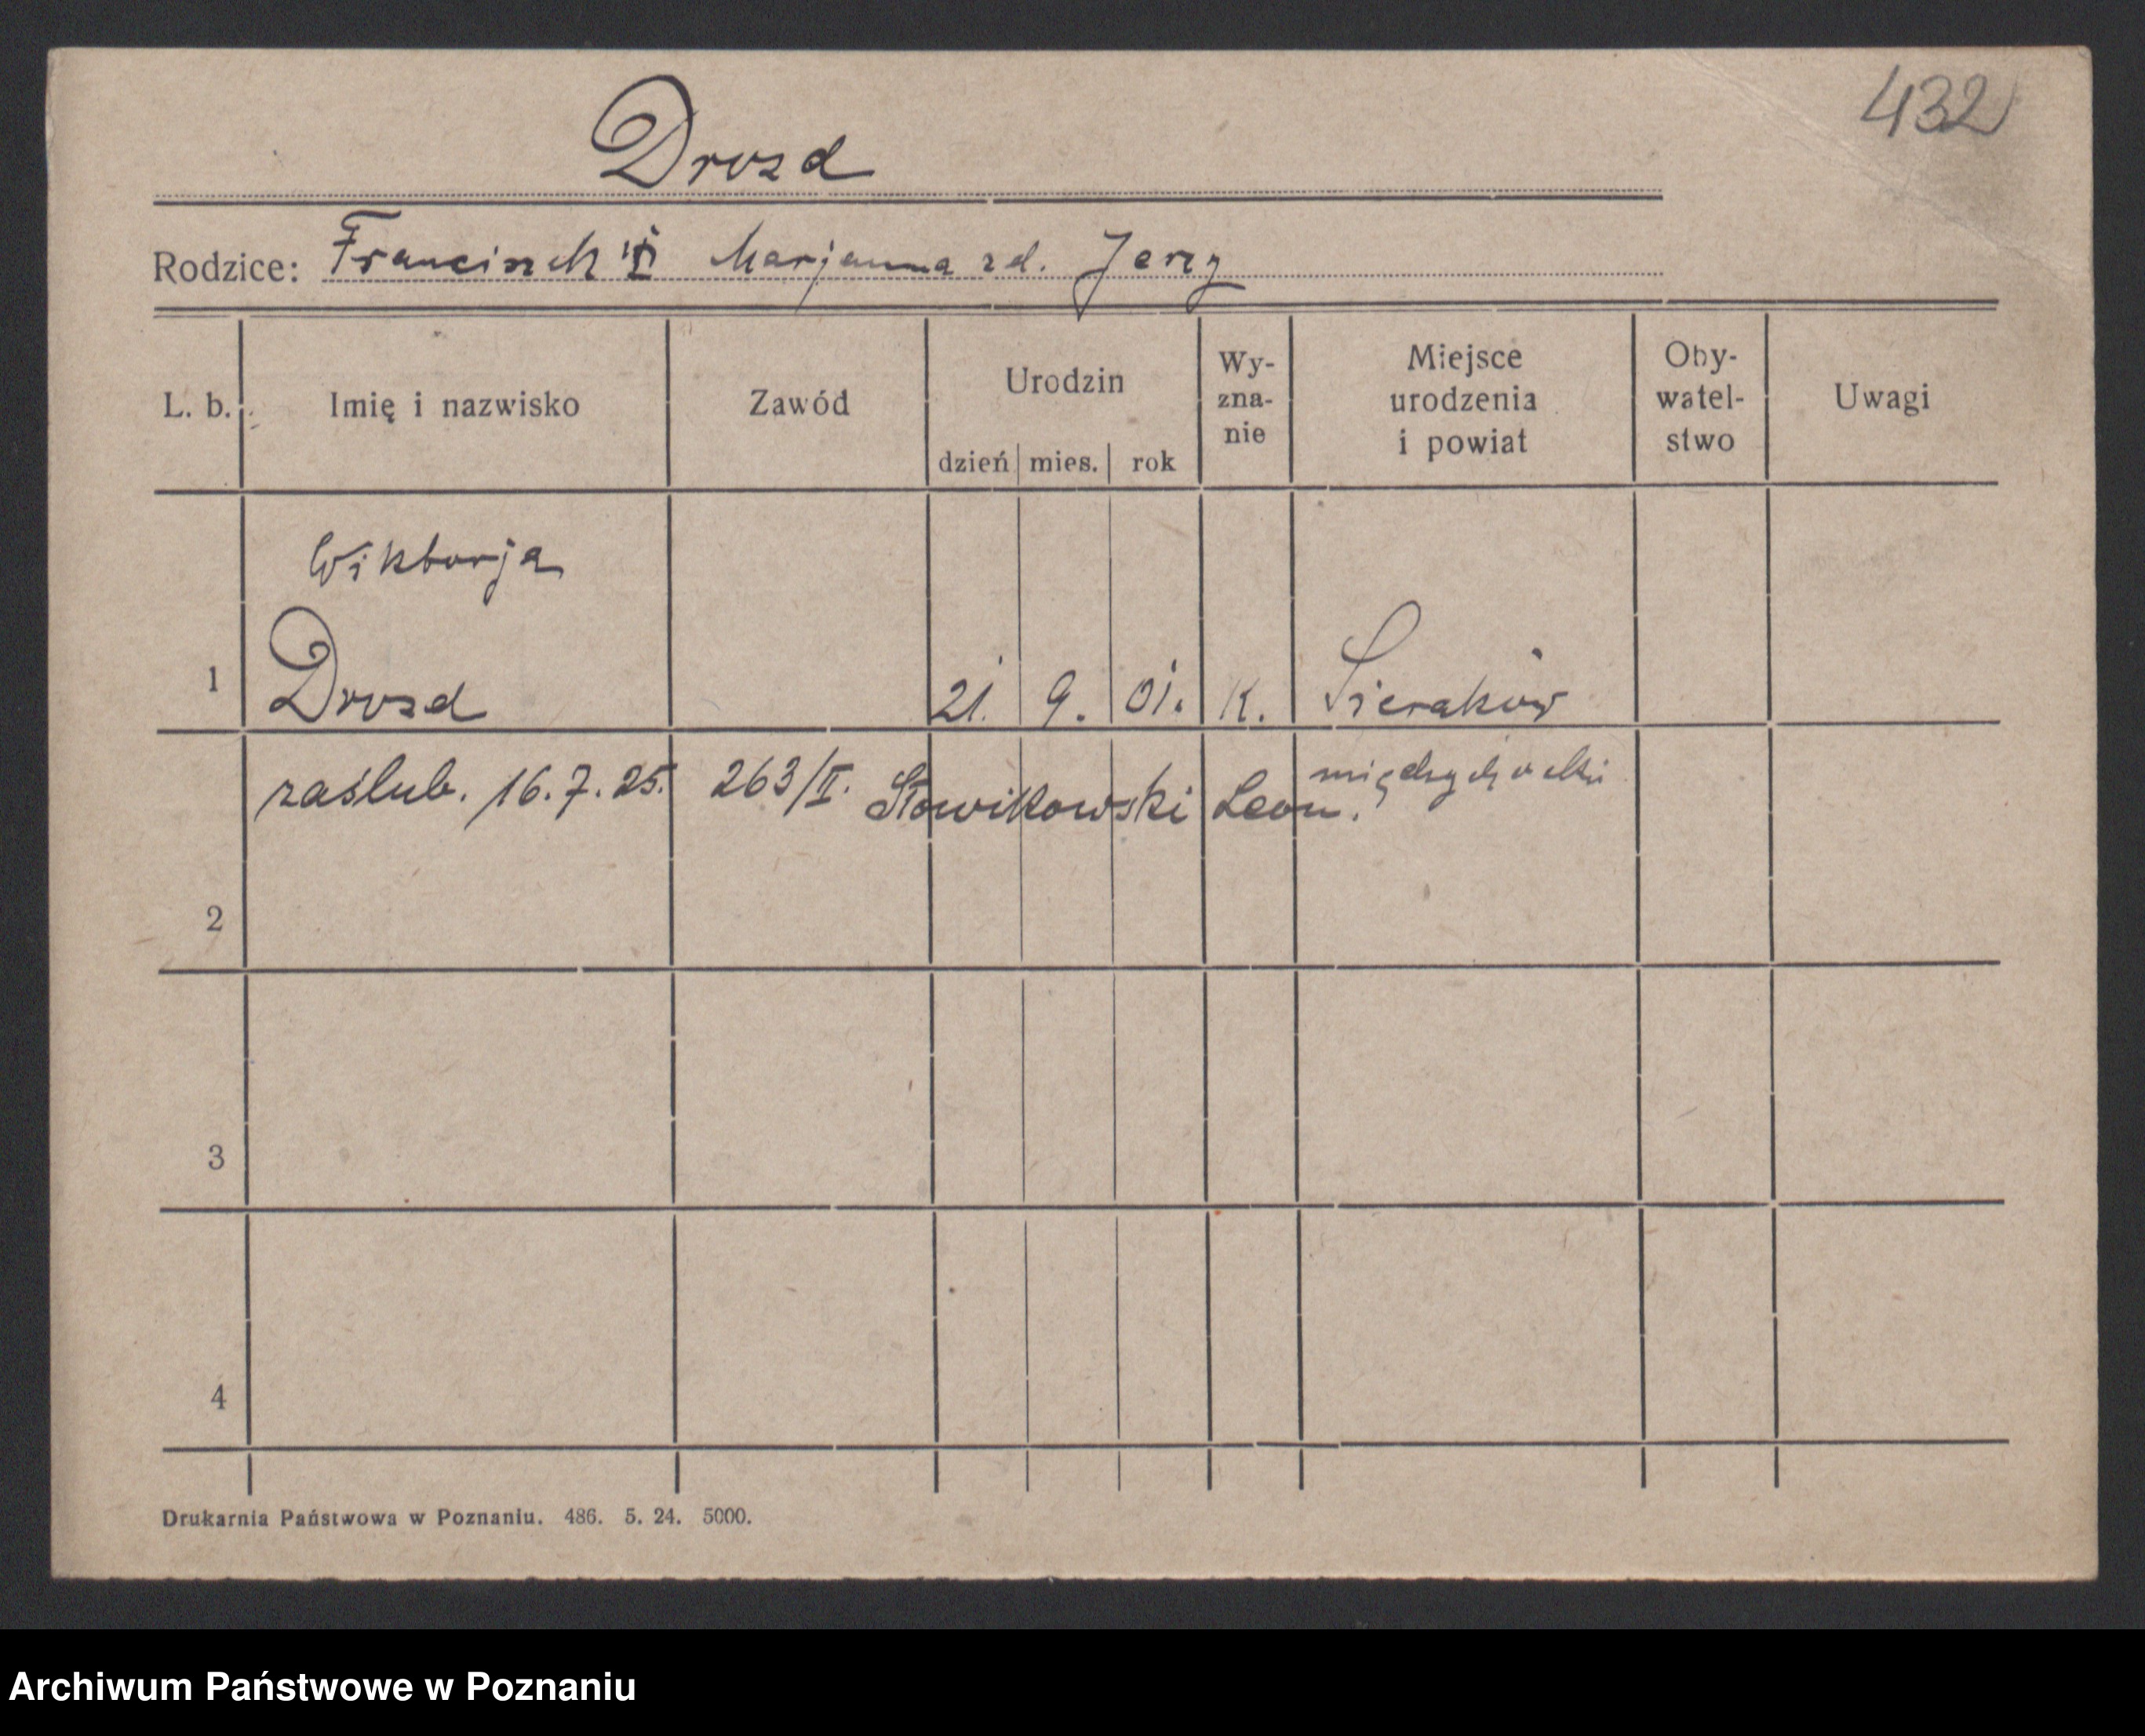 432
Drozd
Rodzice: Franciszek i Marjanna zd. Jerzy
L. b. Imię i nazwisko Zawód Urodzin dzień mies. rok Wy-zna-nie Miejsce urodzenia i powiat Oby-watel-stwo Uwagi
Wiktorja
1 Drozd 21. 9. 01. K. Sieraków
międzychodzki
zaślub. 16.7.25. 263/II. Słowikowski Leon.
2
3
4
Drukarnia Państwowa w Poznaniu. 486. 5. 24. 5000.
Archiwum Państwowe w Poznaniu